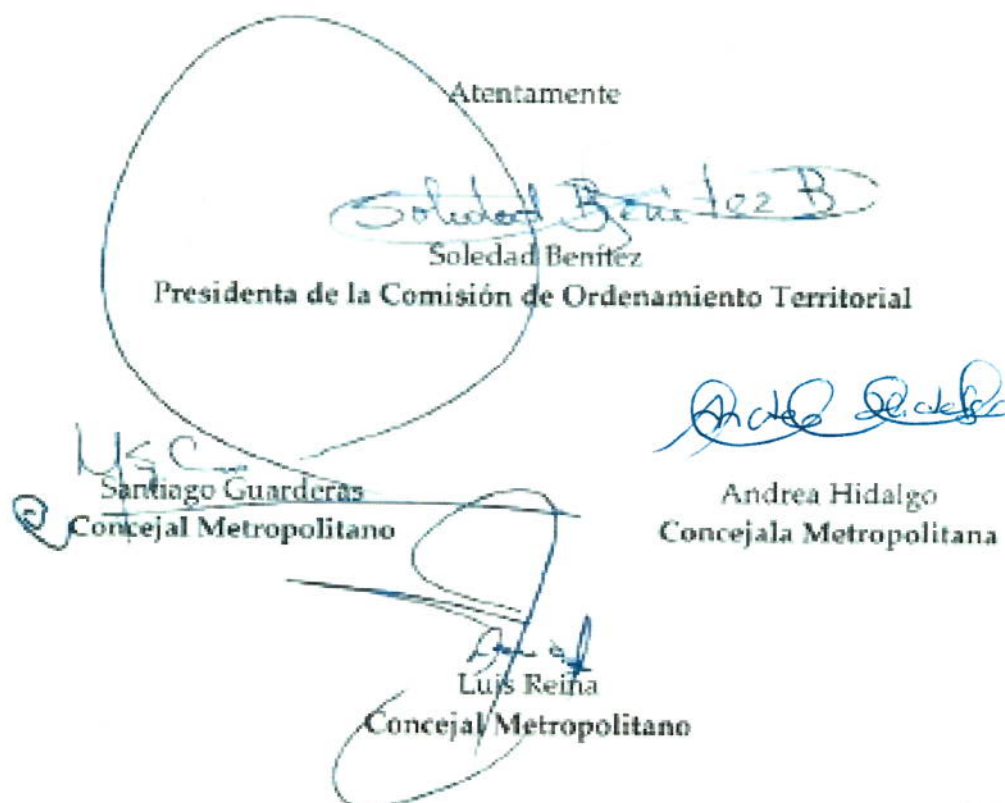 Atentamente
Soledad Benítez B
Soledad Benítez
Presidenta de la Comisión de Ordenamiento Territorial
Santiago Guarderas
Concejal Metropolitano
Andrea Hidalgo
Concejala Metropolitana
Luis Reina
Concejal Metropolitano